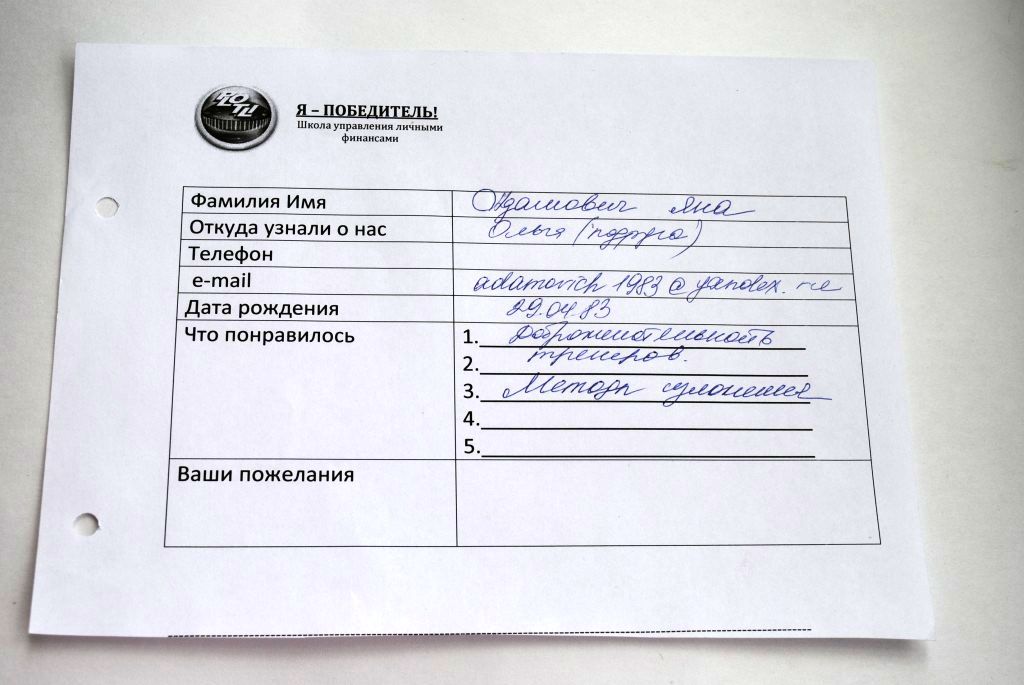 Я – ПОБЕДИТЕЛЬ!
Школа управления личными
финансами
Фамилия Имя Адамович Яна
Откуда узнали о нас Ольга (подруга)
Телефон
e-mail adamovich1983@yandex.ru
Дата рождения 29.04.83
Что понравилось 1. Доброжелательность
2. тренеров.
3. Методы изложения
4.
5.
Ваши пожелания